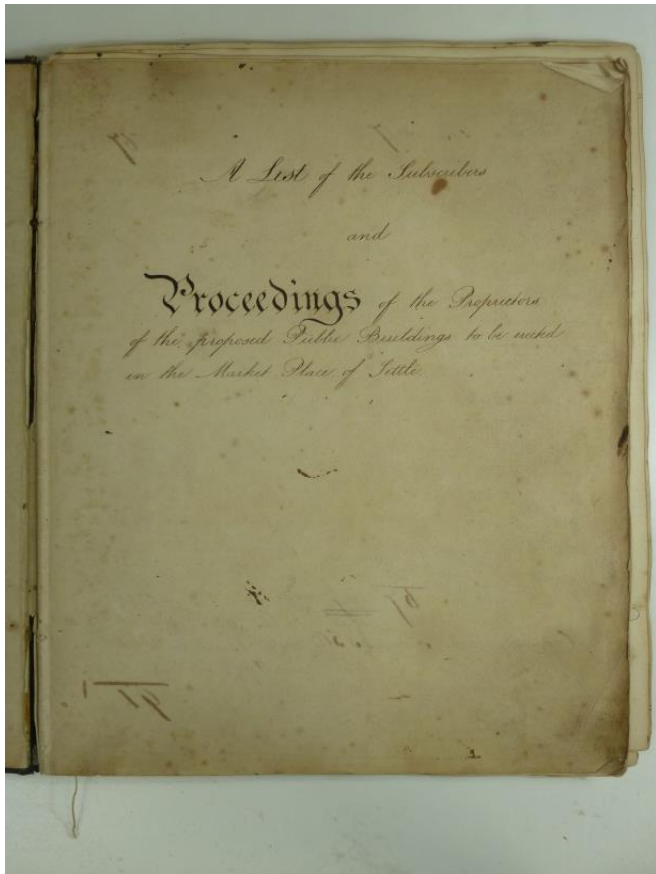 A List of the Subscribers
and
Proceedings of the Proprietors
of the proposed Public Buildings to be erected
in the Market Place of Settle